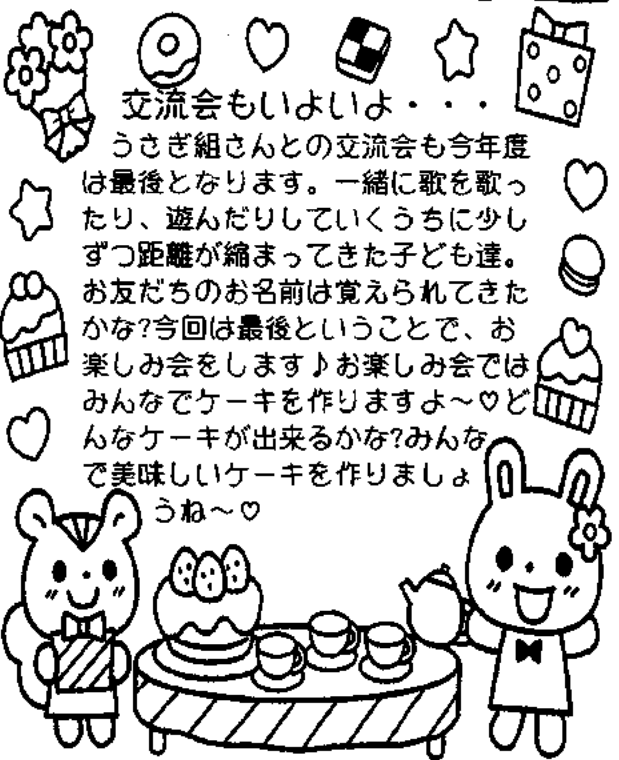 交流会もいよいよ・・・
うさぎ組さんとの交流会も今年度
は最後となります。一緒に歌を歌っ
たり、遊んだりしていくうちに少し
ずつ距離が縮まってきた子ども達。
お友だちのお名前は覚えられてきた
かな?今回は最後ということで、お
楽しみ会をします♪お楽しみ会では
みんなでケーキを作りますよ～♡ど
んなケーキが出来るかな?みんな
で美味しいケーキを作りましょ
うね～♡